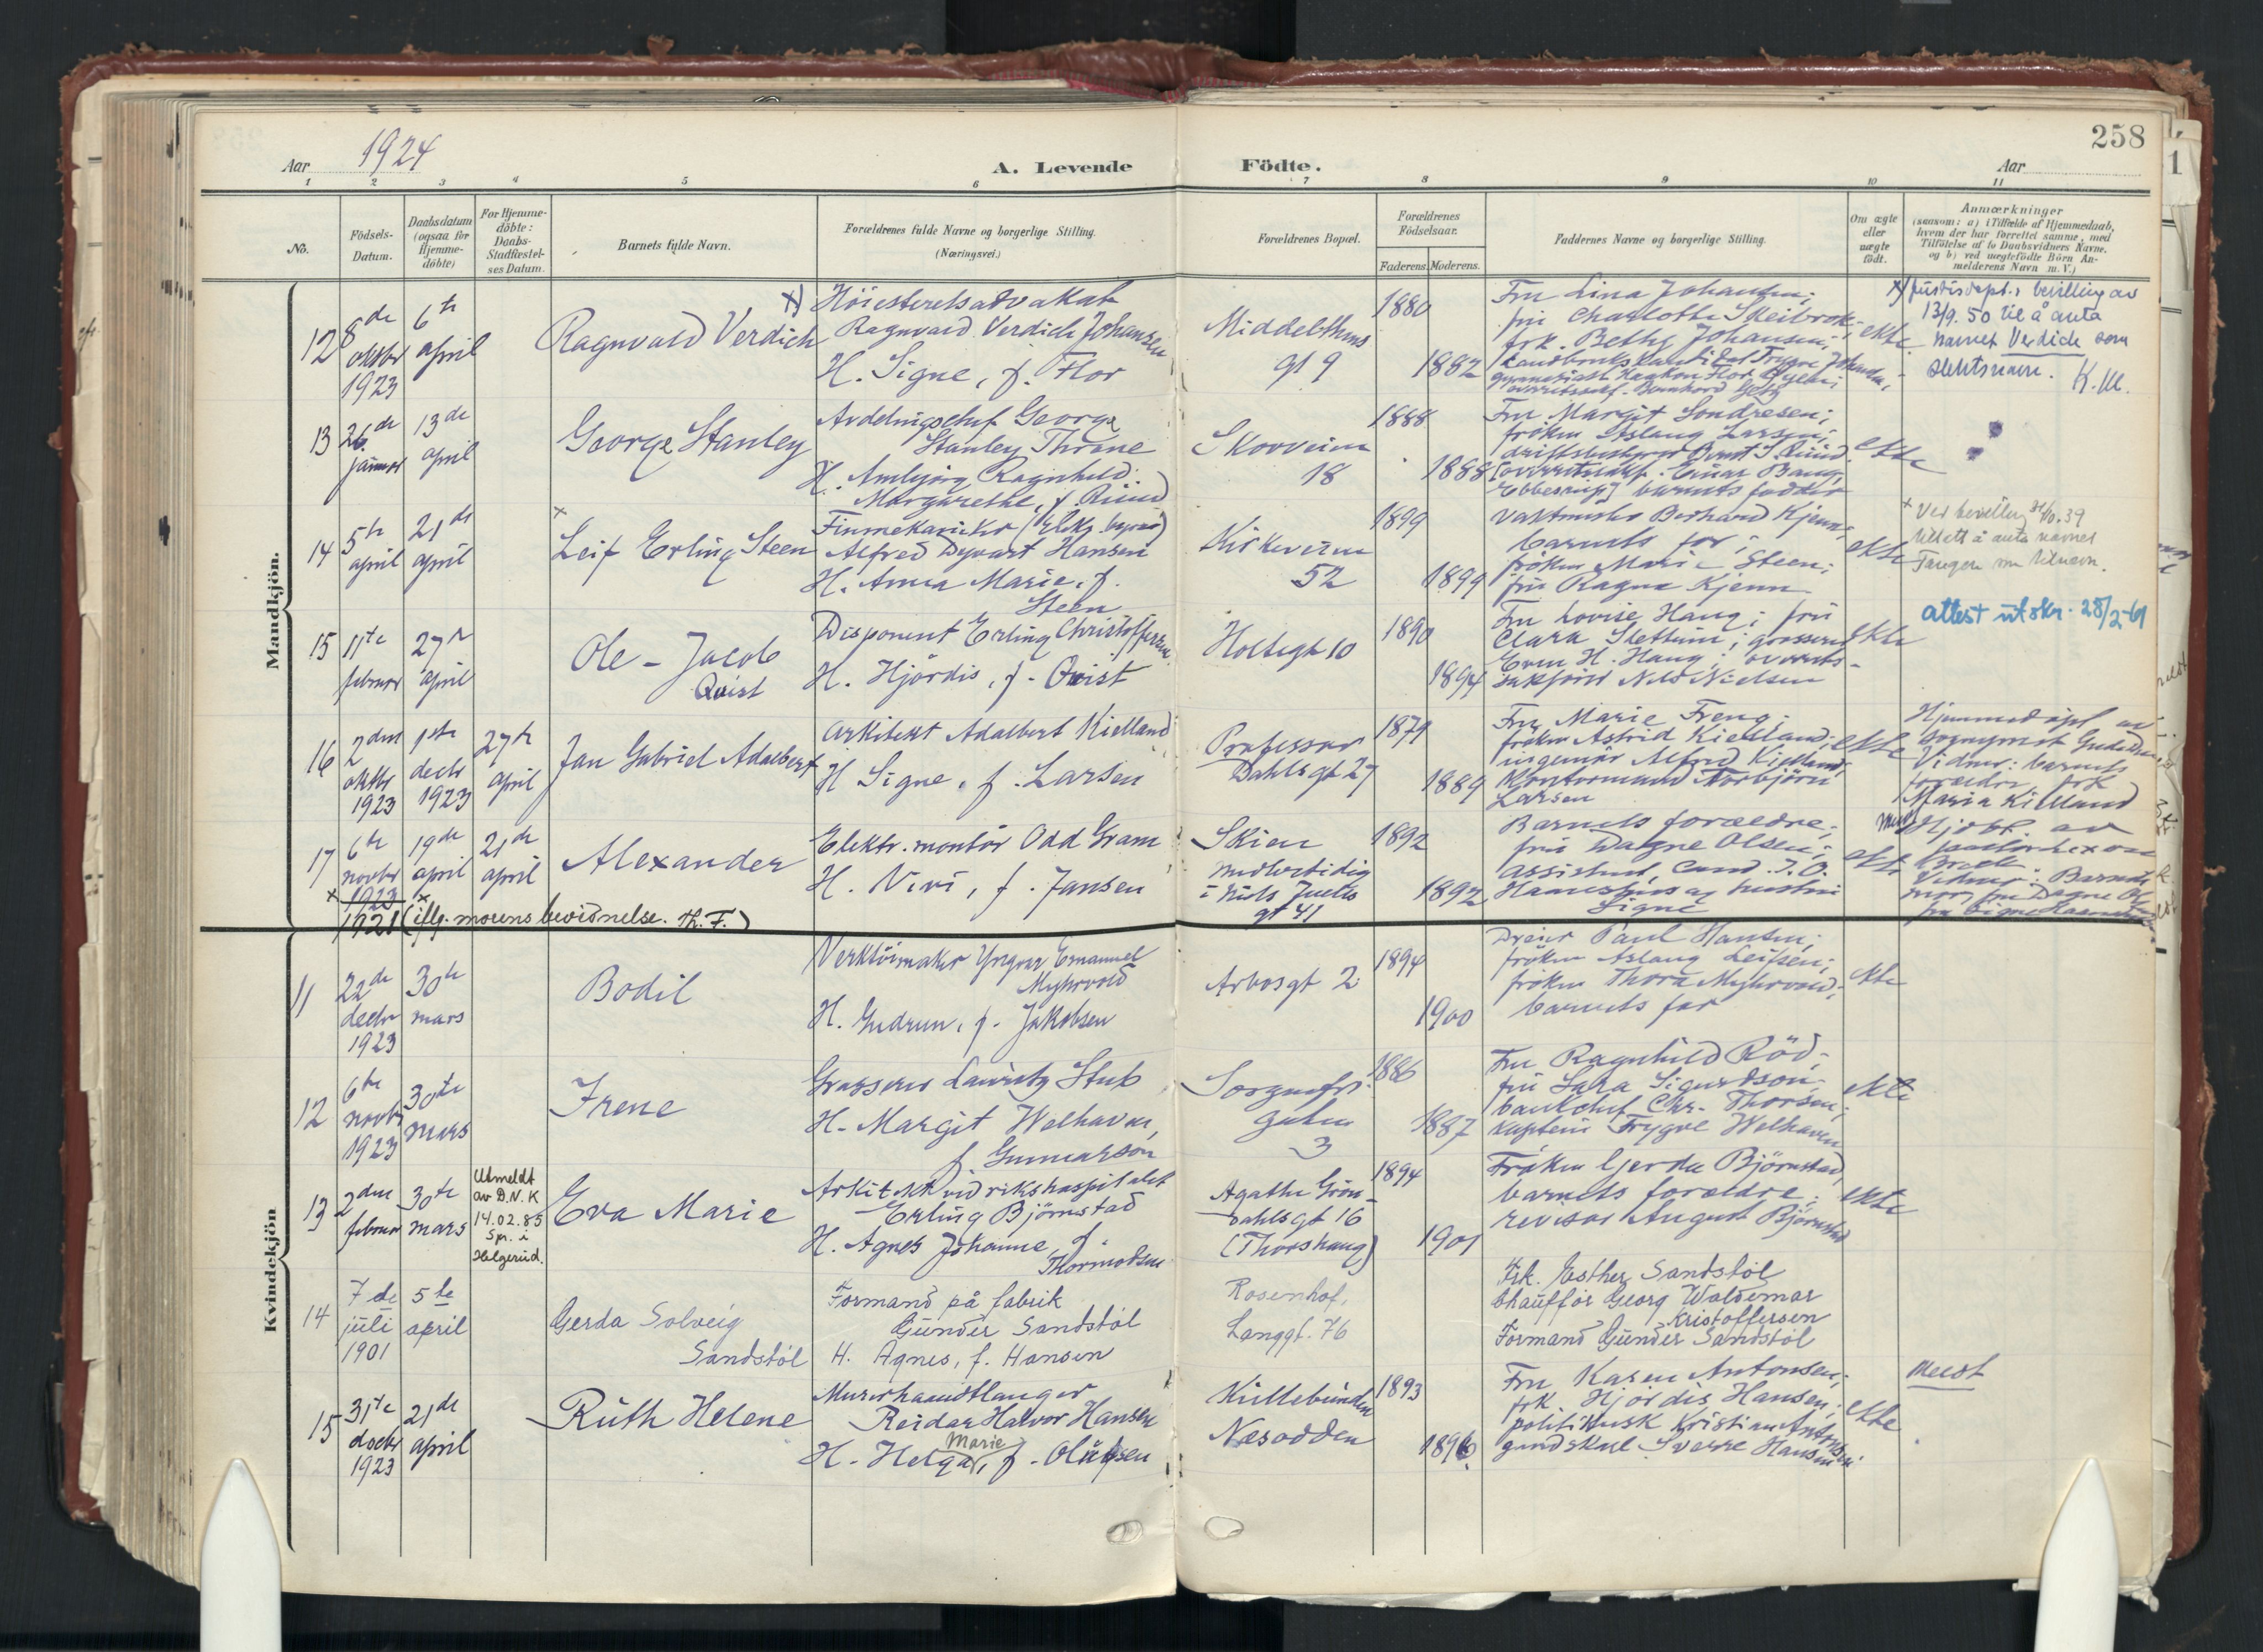 258
Aar 1924
A. Levende Födte.
Aar
1 2 3 4 5 6 7 8 9 10 11
No.
Födsels-
Datum.
Daabsdatum
(ogsaa for
Hjemme-
döbte)
For Hjemme-
döbte:
Daabs-
Stadfæstel-
ses Datum.
Barnets fulde Navn.
Forældrenes fulde Navne og borgerlige Stilling.
(Næringsvei.)
Forældrenes Bopæl.
Forældrenes
Födselsaar.
Faderens. Moderens.
Faddernes Navne og borgerlige Stilling.
Om ægte
eller
uægte
födt.
Anmærkninger
(saasom: a) i Tilfælde af Hjemmedaab,
hvem der har forrettet samme, med
Tilföielse af to Daabsvidners Navne,
og b) ved uægtefödte Börn An-
melderens Navn m. V.)
Mandkjön.
12
8de
oktbr
1923
6te
april
Ragnvald Verdich
x) Höiesteretsadvokat
Ragnvald Verdich Johansen
H. Signe, f. Flor
Middelthuns
gt 9
1880
1882
Fru Lina Johansen;
fru Charlotte Skeibrok;
frk. Bethy Johansen;
ekte
x) Justisdept.s bevilling av
13/9. 50 til å anta
navnet Verdich som
slektsnavn. K.M.
13
26de
januar
13de
april
George Stanley
Avdelingschef George
Stanley Thrane
H. Ambjörg Ragnhild
Margarethe, f. Ruud
Skovveien
18
1888
1888
Fru Margit Sondresen;
fröken Aslaug Larsen;
driftsbestyrer Bernt S. Ruud
[overretssakf. Einar Bang,
Ebbesrup] barnets fadder
ekte
14
5te
april
21de
april
x
Leif Erling Steen
Finmekaniker (Elekt. byraa)
Alfred Dyvart Hansen
H. Anna Marie, f.
Steen
Kirkeveien
52
1899
1899
Vaktmester Berhard Kjenn;
barnets far;
fröken Marie Steen;
fru Ragna Kjenn
ekte
x Ved bevilling 24/10.39
tillatt å anta navnet
Tangen som tilnavn.
15
11te
februar
27de
april
Ole - Jacob
Qvist
Disponent Erling Christoffersen
H. Hjördis, f. Qvist
Holtegt 10
1890
1894
Fru Lovise Haug; fru
Clara Slettum; grosserer
Even H. Haug; overrets-
sakförer Nils Nielsen
ekte
attest utskr. 28/2-61
16
2den
oktbr
1923
1ste
decbr
1923
27de
april
Jan Gabriel Adalbert
Arkitekt Adalbert Kielland
H. Signe, f. Larsen
Professor
Dahlsgt 27
1879
1889
Fru Marie Freng;
fröken Astrid Kielland;
ingeniör Alfred Kielland;
Kontormand Torbjörn
Larsen
ekte
Hjemmedöpt av
sogneprest
Vidner: barnets
forældre, frk
Maria Kielland
17
6te
novbr
1923
x
1921 (iflg. morens bevidnelse. Th. F.)
19de
april
x
21de
april
Alexander
Elektr. montör Odd Gram
H. Vivi, f. Jansen
Skien
midlertidig
i Niels Juels
gt 41
1892
1892
Barnets forældre;
fru Dagne Olsen;
assistent, cand. J. O.
Haanshus og hustru
Signe
ekte
Hjdbt. av
Vidner: Barnets
mor, fru Dagne Ol
Kvindekjön
11
22de
decbr
1923
30te
mars
Bodil
Verktöimaker Yngvar Emanuel
Myhrvold
H. Gudrun, f. Jakobsen
Arbosgt 2
1894
1900
Dreier Paul Hansen;
fröken Aslaug Leifsen;
fröken Thora Myhrvold;
barnets far
ekte
12
6te
novbr
1923
30te
mars
Irene
Grosserer Lauritz Stub
H. Margit Welhaven,
f. Gunnarson
Sorgenfri
gaten
3
1886
1887
Fru Ragnhild Röd;
fru Lara Sigurdson;
bankchef Chr. Thorsen;
kaptein Trygve Welhaven
ekte
13
2den
februar
30te
mars
Utmeldt
av D.N.K
14.02.85
Spr. i
Helgerud.
Eva Marie
Arkitekt ved rikshospitalet
Erling Björnstad
H. Agnes Johanne, f.
Thormodsen
Agathe Grön-
dahlsgt 16
(Thorshaug)
1894
1901
Fröken Gerda Björnstad,
barnets forældre;
revisor August Björnstad
ekte
14
7de
juli
1901
5te
april
Gerda Solveig
Sandstöl
Formand på fabrik
Gunder Sandstöl
H. Agnes, f. Hansen
Rosenhof,
Langgt. 76
Frk. Esther Sandstöl
Chaufför Georg Waldemar
Kristoffersen
Formand Gunder Sandstöl
15
31te
decbr
1923
21de
april
Ruth Helene
Murerhaandtlanger
Reidar Halvor Hansen
Marie
H. Helga, f. Olausen
Hellebunden
Næsodden
1893
1896
Fru Karen Antonsen;
frk Hjördis Hansen;
politikusk Kristian Antonsen
gardskarl Sverre Hansen
ekte